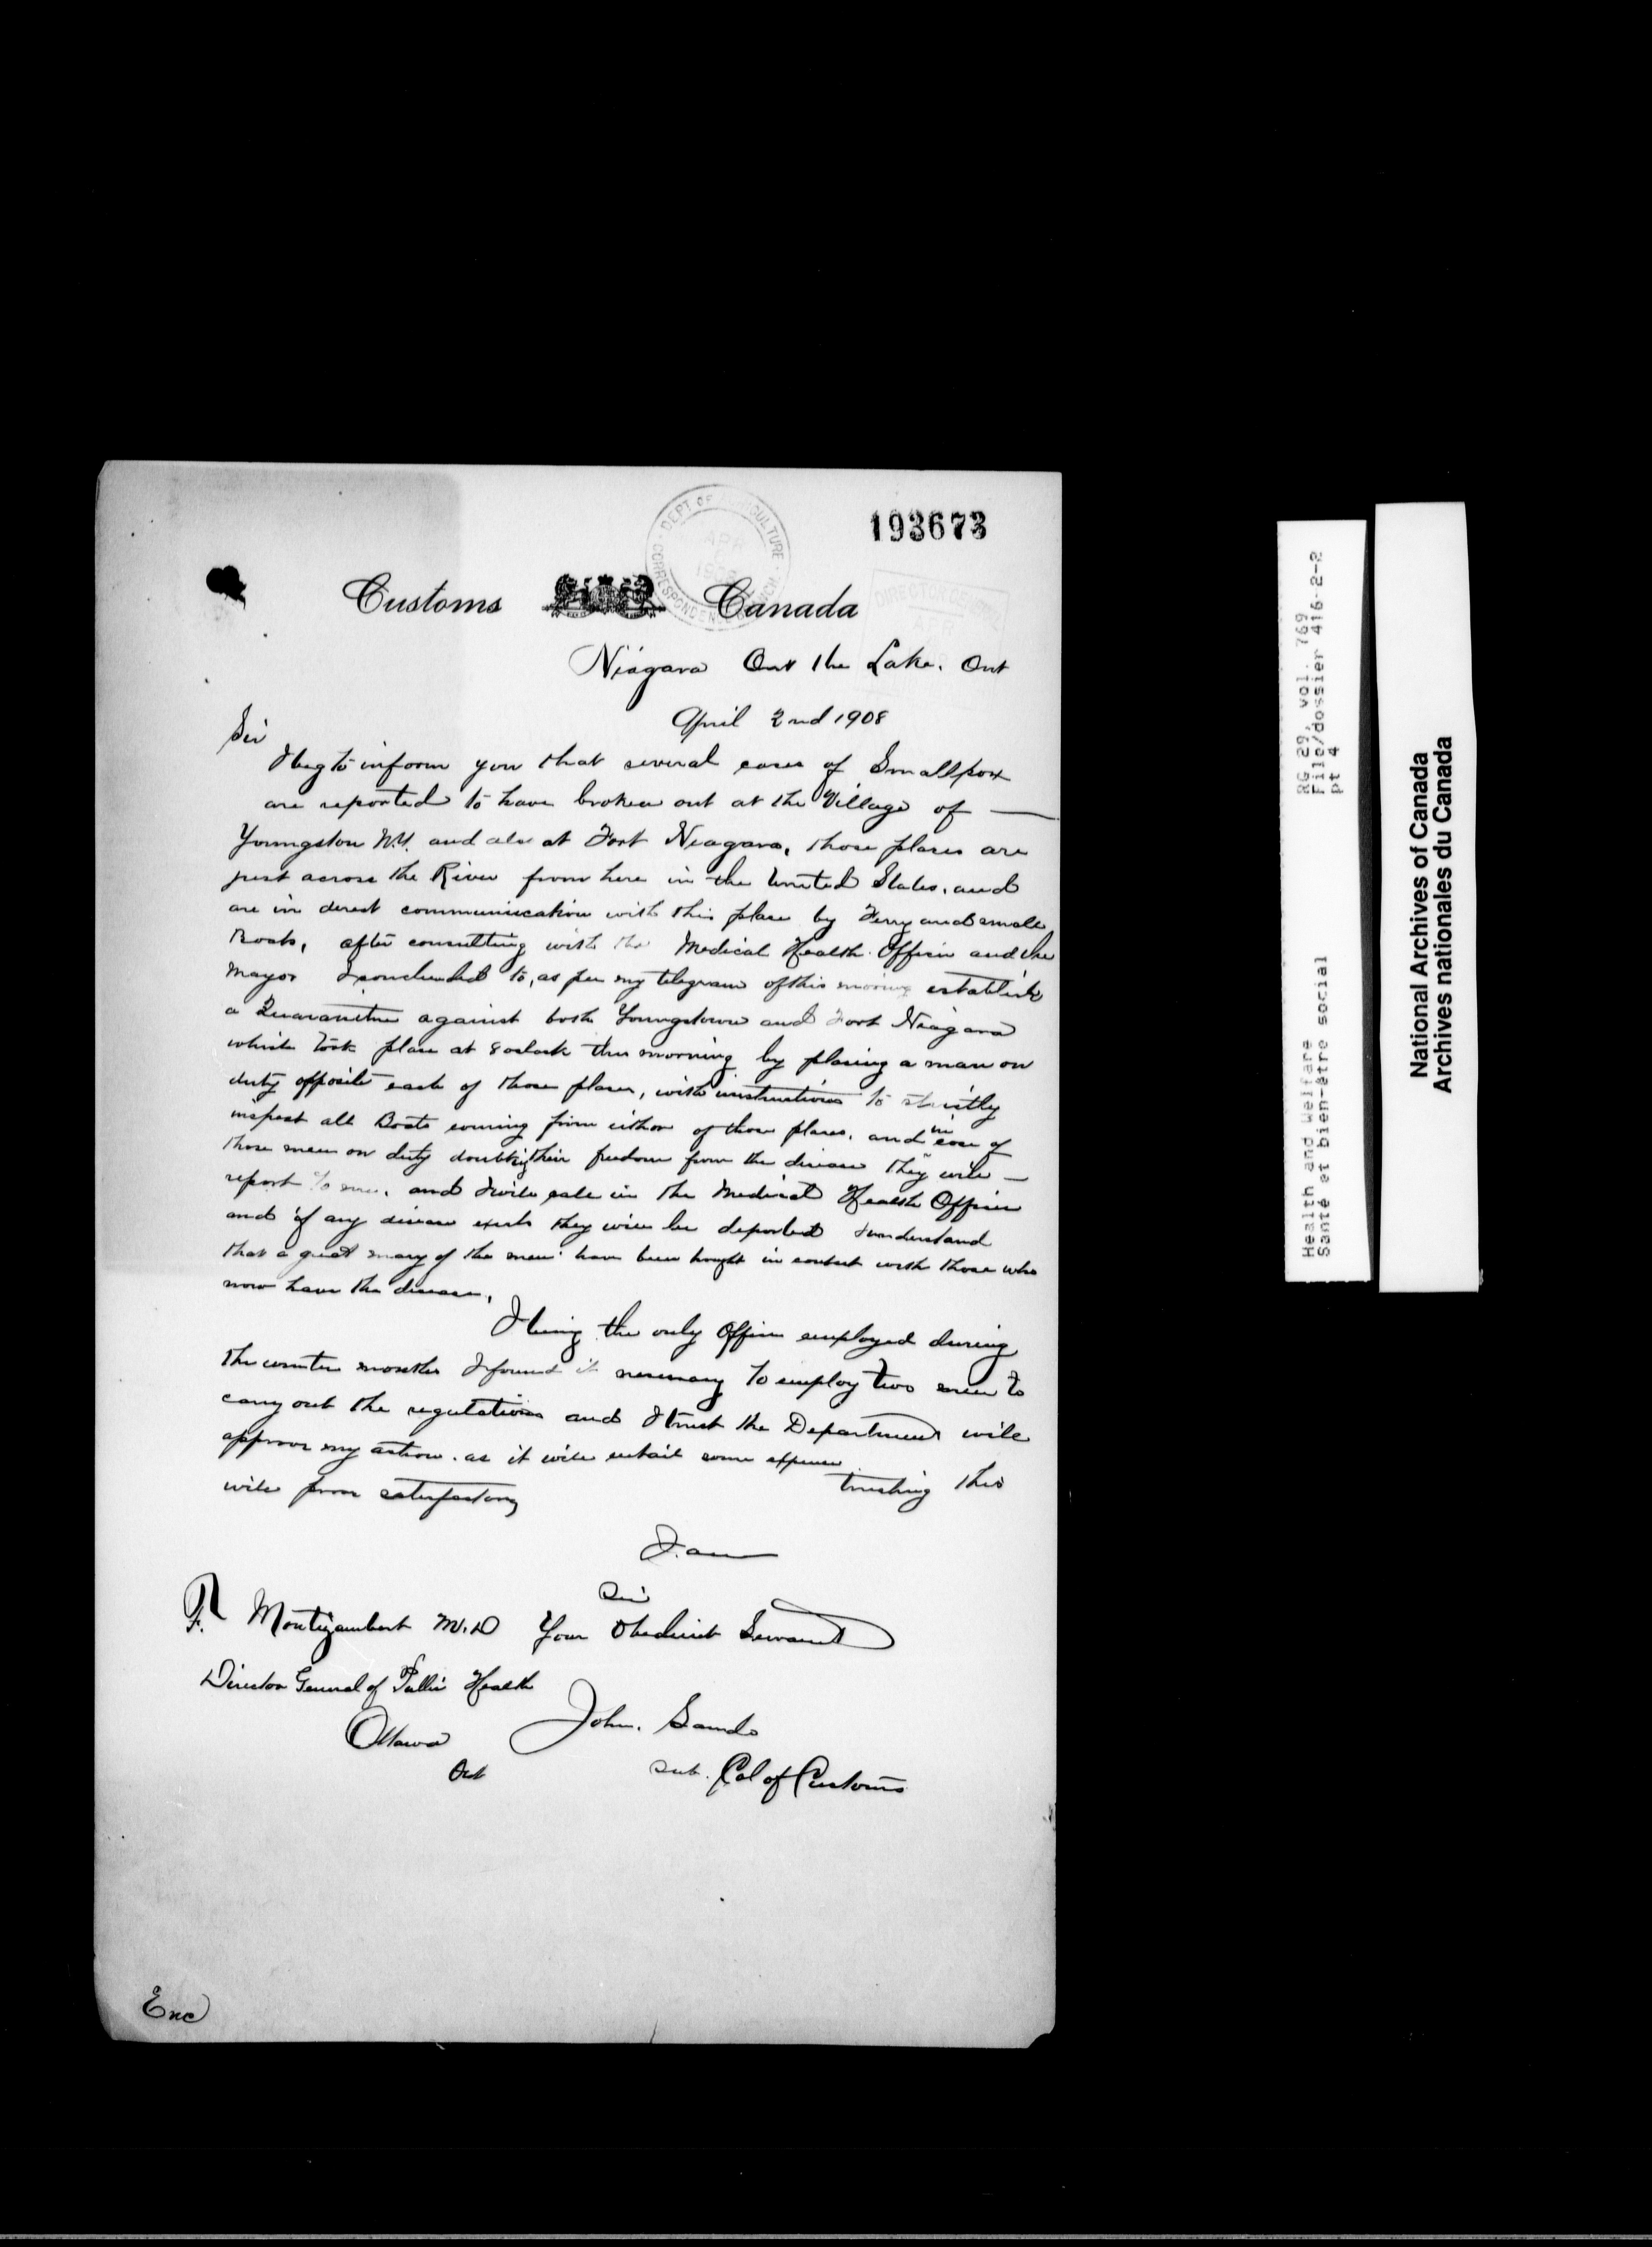 193673
DEPT OF AGRICULTURE
CORRESPONDENCE BRANCH
APR
1908
DIRECTOR GENERAL
APR
Customs Canada
Niagara On the Lake. Ont
April 2nd 1908
Sir
I beg to inform you that several cases of Smallpox
are reported to have broken out at the Village of —
Youngston N.Y. and also at Fort Niagara, those places are
just across the River from here in the United States, and
are in direct communication with this place by Ferry and small
Boats, after consulting with the Medical Health Officer and the
Mayor I concluded to, as per my telegram of this morning establish
a Quarantine against both Youngstown and Fort Niagara
which took place at 8 oclock this morning by placing a man on
duty opposite each of those places, with instructions to strictly
inspect all Boats coming from either of those places, and in case of
those men on duty doubting their freedom from the disease they will —
report to me, and I will call in the Medical Health Officer
and if any disease exists they will be deported I understand
that a great many of the men have been brought in contact with those who
now have the disease,
I being the only Officer employed during
the winter months I found it necessary to employ two men to
carry out the regulations and I trust the Department will
approve my action. as it will entail some expense
trusting this
will prove satisfactory
I am
Sir
Your Obedient Servant
F. Montizambert M.D
Director General of Public Health
Ottawa
Ont
John. Sando
Sub. Col of Customs
Enc
RG 29, vol. 769
File/dossier 416-2-2
pt 4
Health and Welfare
Santé et bien-être social
National Archives of Canada
Archives nationales du Canada